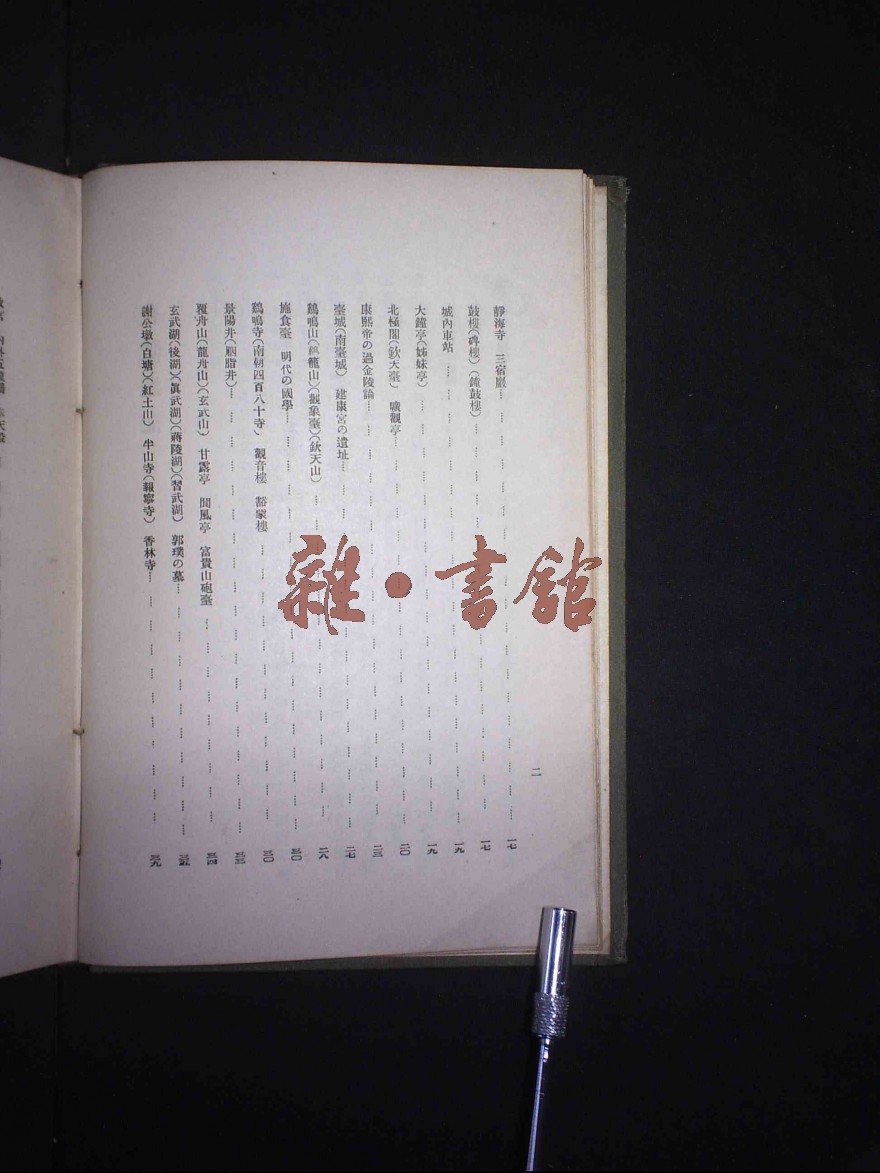 二
靜海寺 三宿巖 一七
鼓樓(碑樓)(鐘鼓樓) 一七
城內車站 一九
大鐘亭(姊妹亭) 一九
北極閣(欽天臺) 曠觀亭 二〇
康熙帝の過金陵論 二三
臺城(南臺城) 建康宮の遺址 二七
鷄鳴山(鷄籠山)(觀象臺)(欽天山) 二八
施食臺 明代の國學 三〇
鷄鳴寺(南朝四百八十寺) 觀音樓 豁蒙樓 三〇
景陽井(胭脂井) 三三
覆舟山(龍舟山)(玄武山) 甘露亭 聞風亭 富貴山砲臺 三四
玄武湖(後湖)(眞武湖)(蔣陵湖)(習武湖) 郭璞の墓 三五
謝公墩(白塘)(紅土山) 半山寺(報寧寺) 香林寺 三九
雜·書館